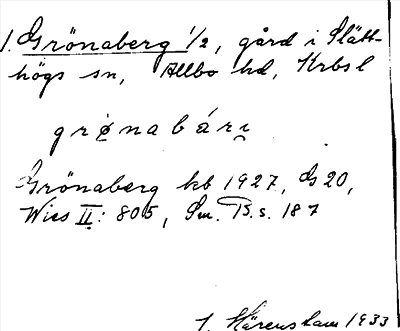 1. Grönaberg 1/2, gård i Slätt-
högs sn, Allbo hd, Krbs l
grønabári
Grönaberg kb 1927, Gs 20,
Wies II: 805, Sm. B. s. 187
J. Härenstam 1933